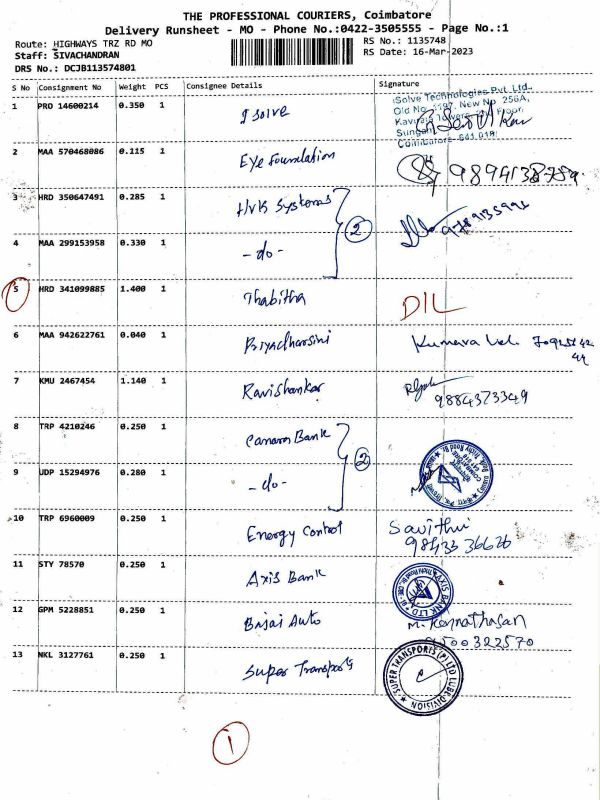 THE PROFESSIONAL COURIERS, Coimbatore
Delivery Runsheet - MO - Phone No.:0422-3505555 - Page No.:1
Route: HIGHWAYS TRZ RD MO
RS No.: 1135748
Staff: SIVACHANDRAN
RS Date: 16-Mar-2023
DRS No.: DCJB113574801
S No Consignment No Weight PCS Consignee Details Signature
1 PRO 14600214 0.350 1 I solve
iSolve Technologies Pvt. Ltd.,
Old No. 1197, New No. 256A,
Coimbatore - 641 018
2 MAA 570468086 0.115 1 Eye foundation
3 HRD 350647491 0.285 1 HVK Systems 2
4 MAA 299153958 0.330 1 -do-
5 HRD 341099885 1.400 1 Thabitha DIL
6 MAA 942622761 0.040 1 Priyadharsini
7 KMU 2467454 1.140 1 Ravishankar
9884373349
8 TRP 4210246 0.250 1 Canara Bank 2
9 UDP 15294976 0.280 1 -do-
10 TRP 6960009 0.250 1 Energy Control Savithri
98433 36626
11 STY 78570 0.250 1 Axis Bank
AXIS BANK LTD
12 GPM 5228851 0.250 1 Bajaj Auto
9500322570
13 NKL 3127761 0.250 1 Super Transports
SUPER TRANSPORTS (P) LTD LUBE-DIVISION
1